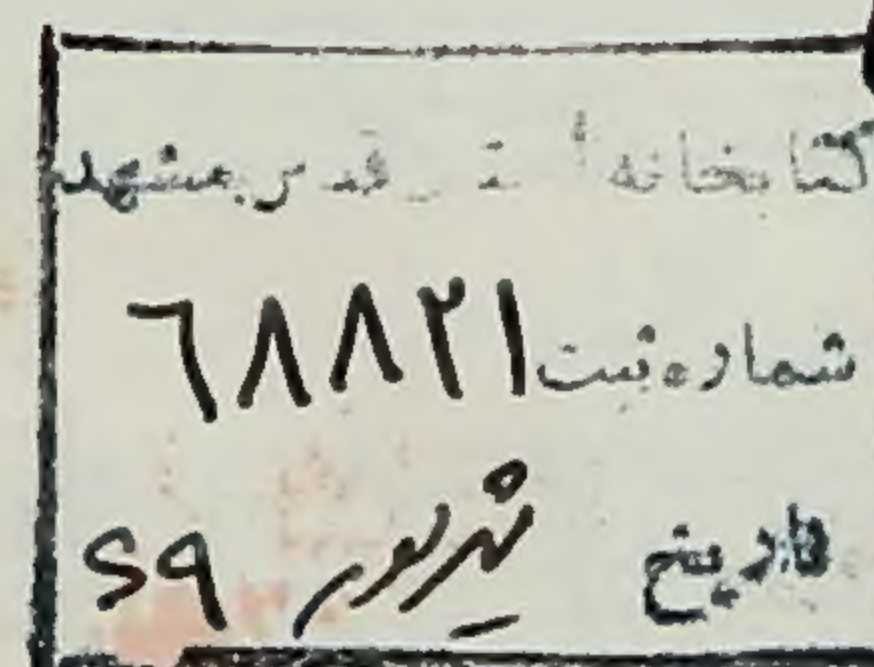 کتابخانه آستانقدس مشهد
شماره ثبت ٦٨٨٢١
تاریخ شهریور ٦٩